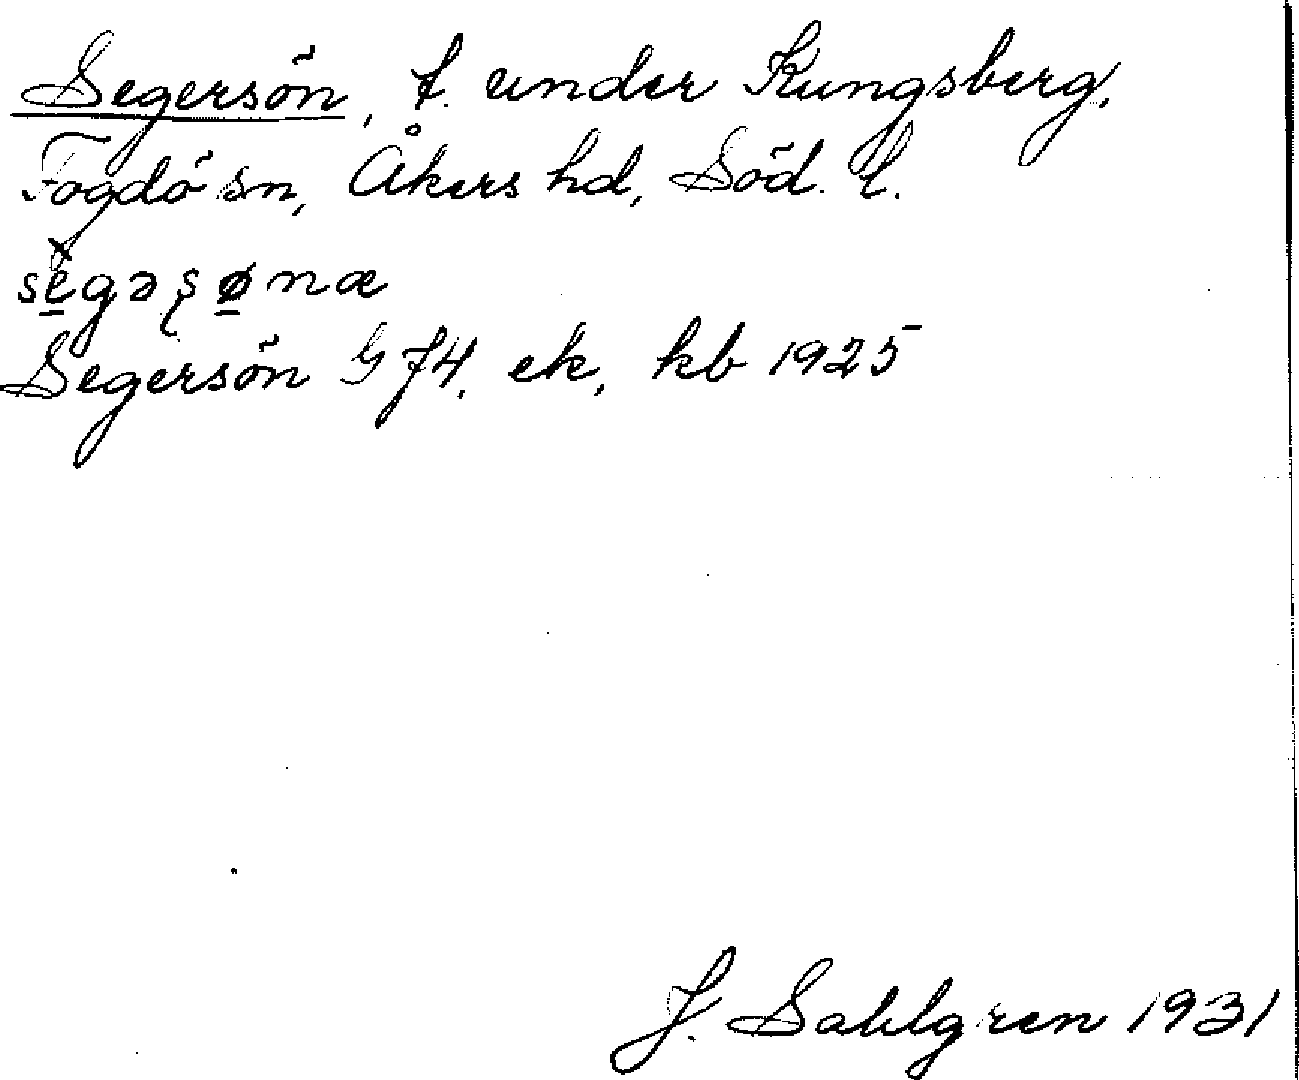 Segersön, t. under Kungsberg,
Fogdö sn, Åkers hd, Söd. l.
sègəʂønæ
Segersön G J4, ek, kb 1925
J. Sahlgren 1931